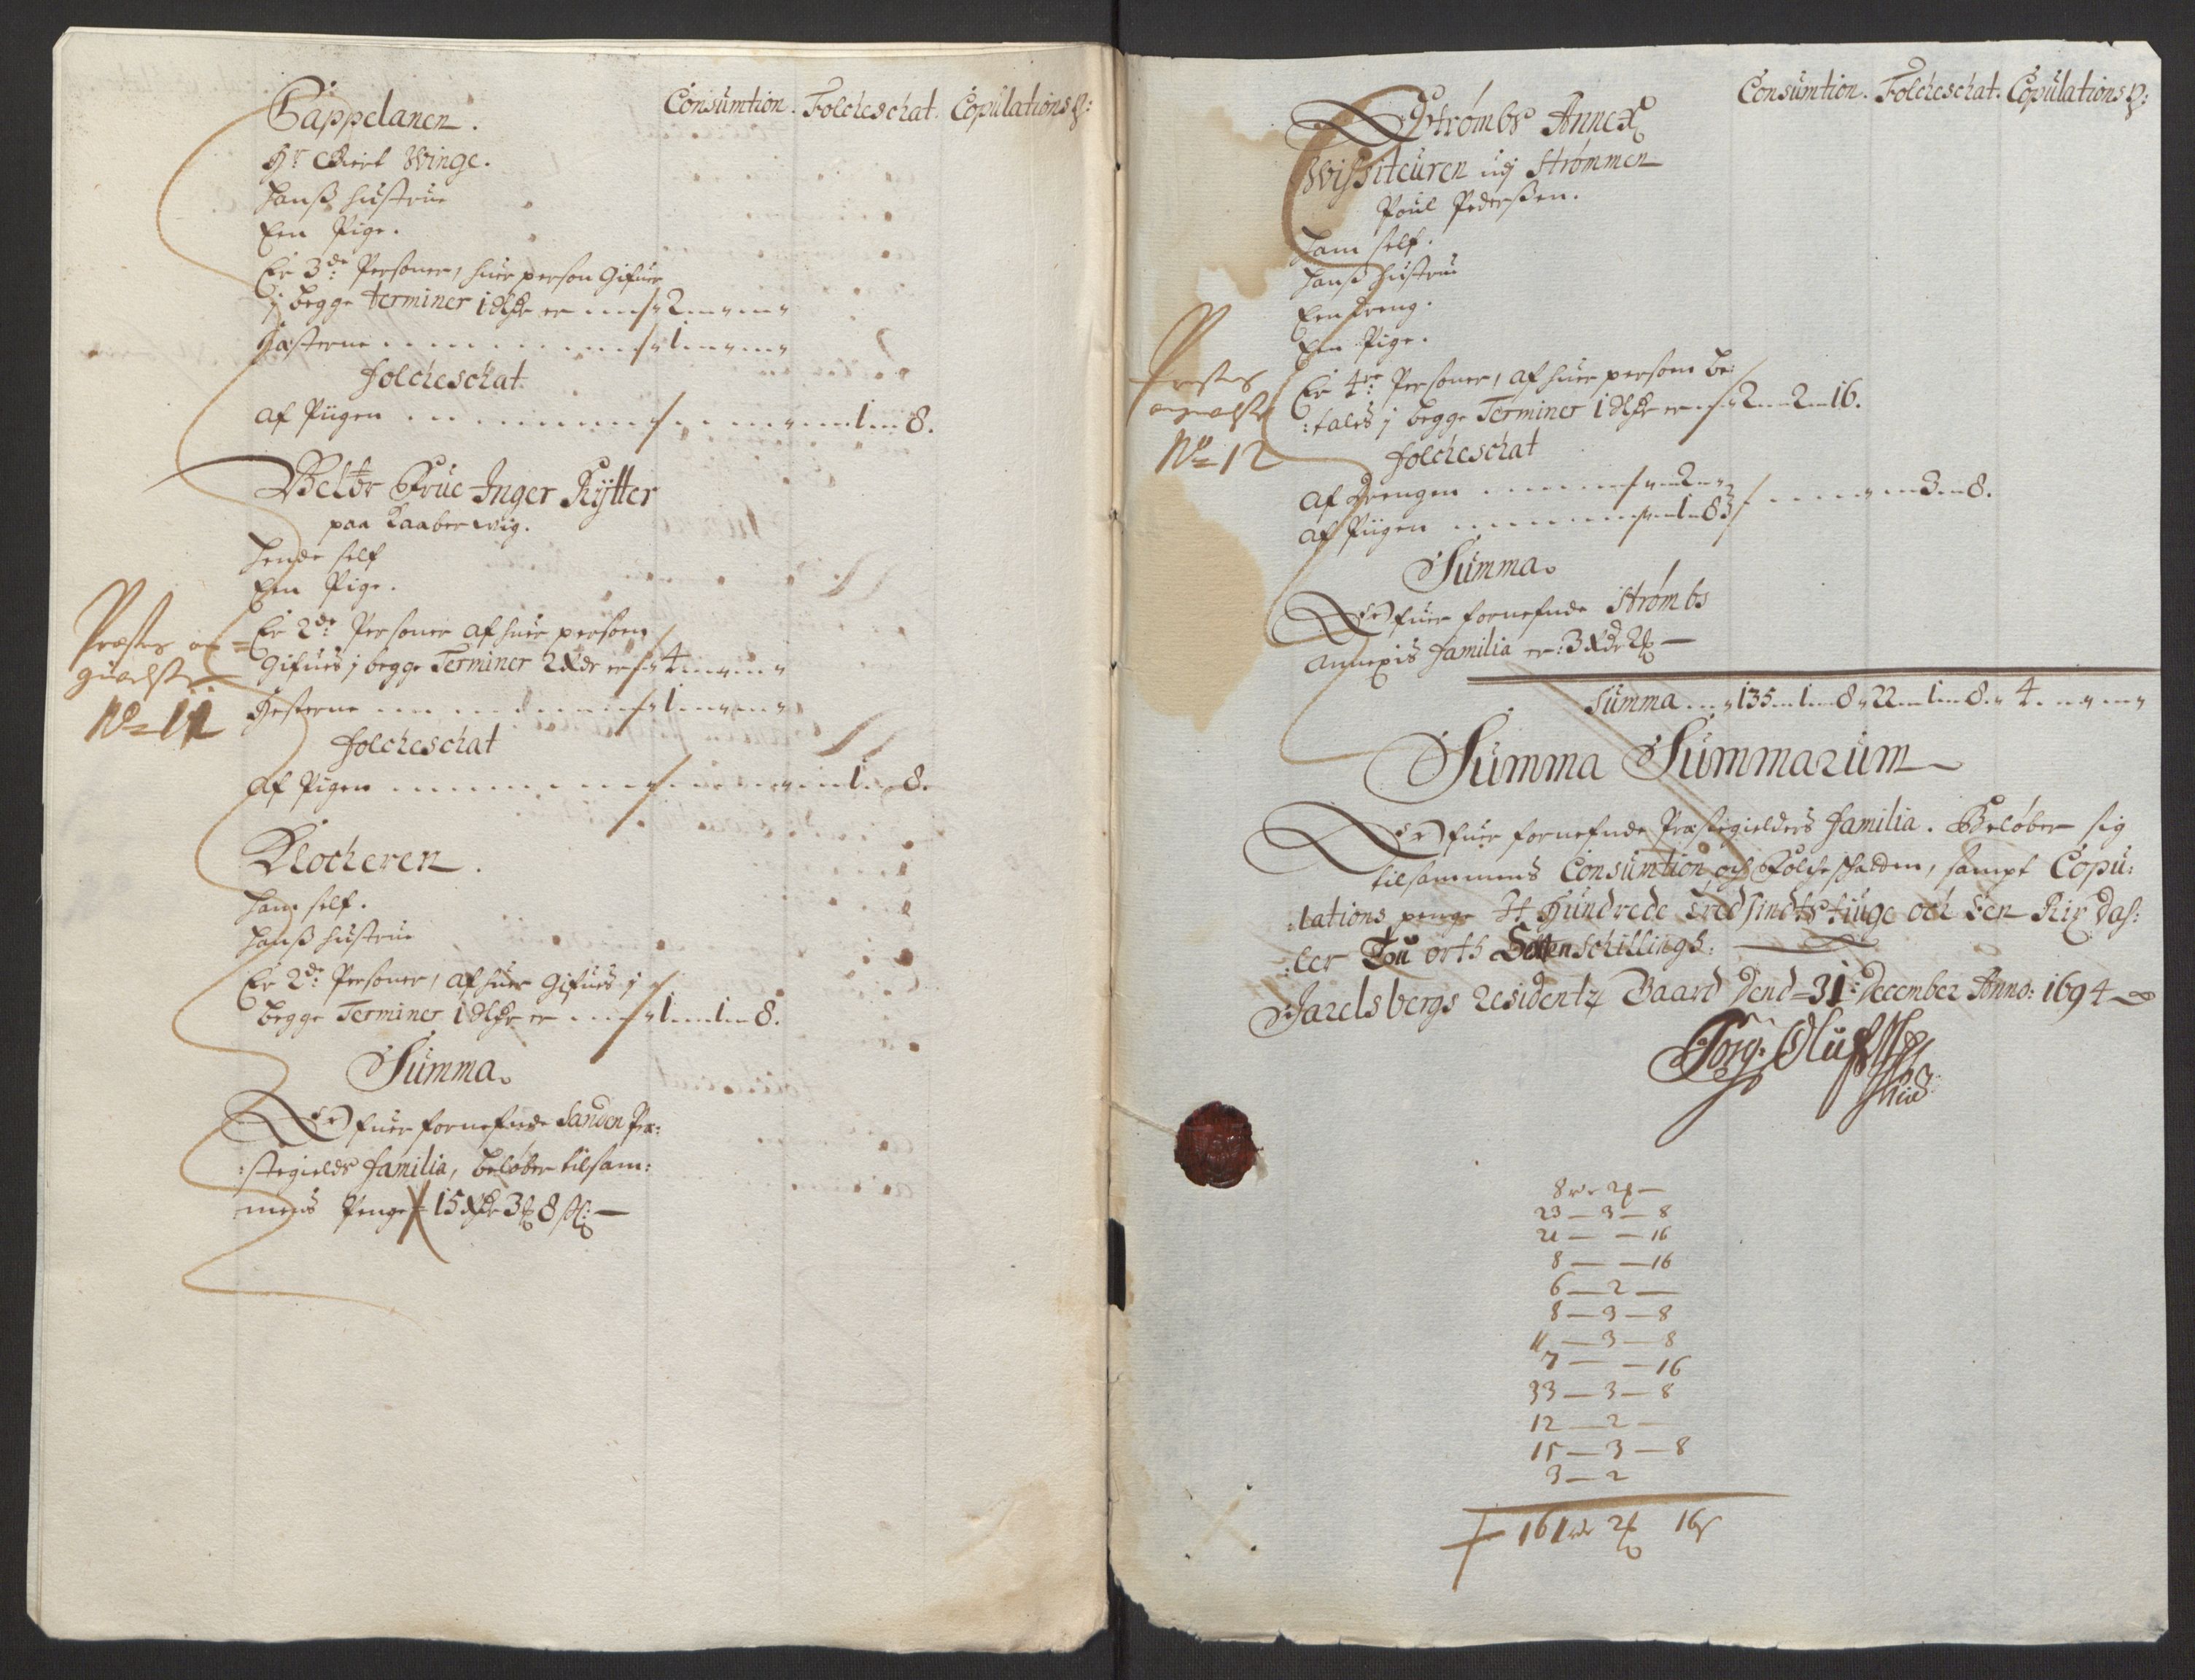 Consumtion. Folcheschat. Copulations p:
Cappelanen.
Hr Giert Winge.
hanß hustrue
Een Pige.
Er 3de Personer, huer person Gifuer
j begge terminer 1 dlr er 2
Gæsterne 1
folcheschat.
af Piigen 1 8.
Velbr Frue Inger Rytter
paa Kaaberwig.
hende self
Een Pige.
Er 2de Personer af huer person
Gifues j begge Terminer 2 Rdr er 4
Hesterne 1
folcheschat
af Pigen 1 8.
Præstes
No 11
Klocheren.
ham self.
hanß hustrue
Er 2de Personer, af huer Gifues j
begge Terminer 1 dlr er 1 1 8.
Summa.
Ofuer fornefnde Sanden Præ:
:stegields familia, beløber tilsam:
mens Penge 15 Rdr 3 8 ß: —
Consumtion. Folcheschat. Copulations p:
Strømbs Annex
Wissiteuren udj Strømmen
Poul Pederßen.
ham self.
hanß hustrue
Een dreng.
Een Pige.
Er 4re Personer, af huer person be:
:tales j begge Terminer 1 dlr er 2 2 16.
folcheschat
af drengen 2
af Piigen 1 8 3 8.
Præstes
No 12
Summa.
Ofuer fornefnde Strømbs
annexis familia er: 3 Rdr 2 —
Summa 135 1 8 22 1 8 4
Summa Summarum
Ofuer fornefnde Præstegielders familia. Beløber sig
tilsammens Consumtion och Folcheschatten, sampt Copu:
:lations penge Et Hundrede Tredsindtstiuge och Een Rix Dah:
:ler Tou orth Sexten schillingh:
Jarelsbergs Residentz Gaard Dend 31: December Anno: 1694
8 2 —
23 — 3 — 8
21 — — 16
8 — — 16
6 — 2 —
8 — 3 — 8
11 — 3 — 8
7 — — 16
33 — 3 — 8
12 — 2 —
15 — 3 — 8
3 — 2
161 2 16